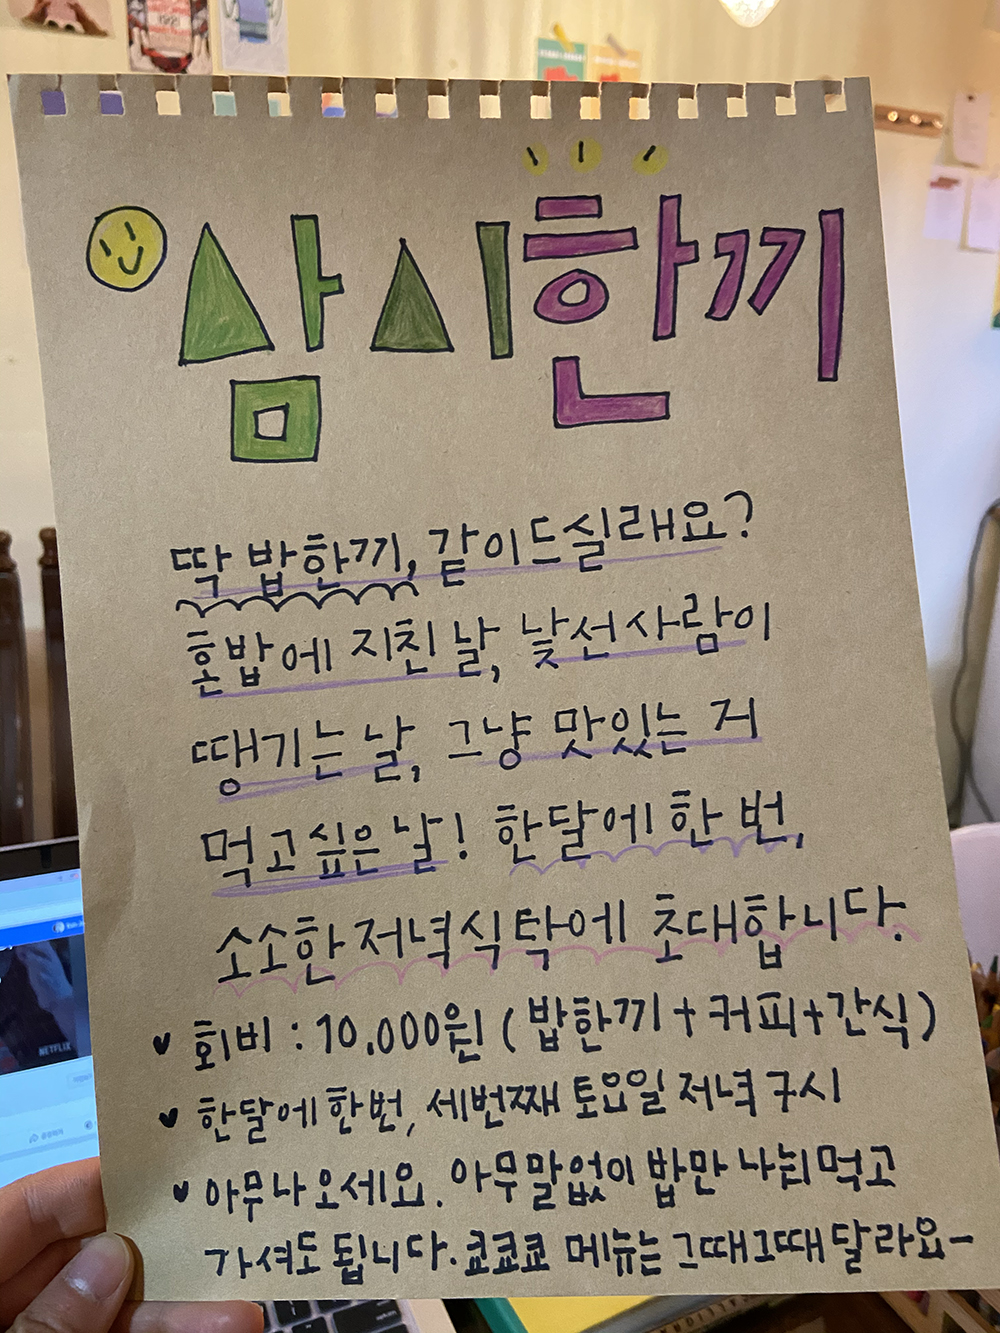 삼시한끼
딱 밥한끼, 같이드실래요?
혼밥에 지친 날, 낯선사람이
땡기는 날, 그냥 맛있는 저
먹고싶은 날! 한달에 한 번,
소소한 저녁식탁에 초대합니다.
♥ 회비 : 10,000원 (밥한끼+커피+간식)
♥ 한달에 한번, 세번째 토요일 저녁 7시
♥ 아무나오세요. 아무말없이 밥만 나눠먹고
가셔도 됩니다. 쿄쿄쿄 메뉴는 그때그때달라요-
NETFLIX